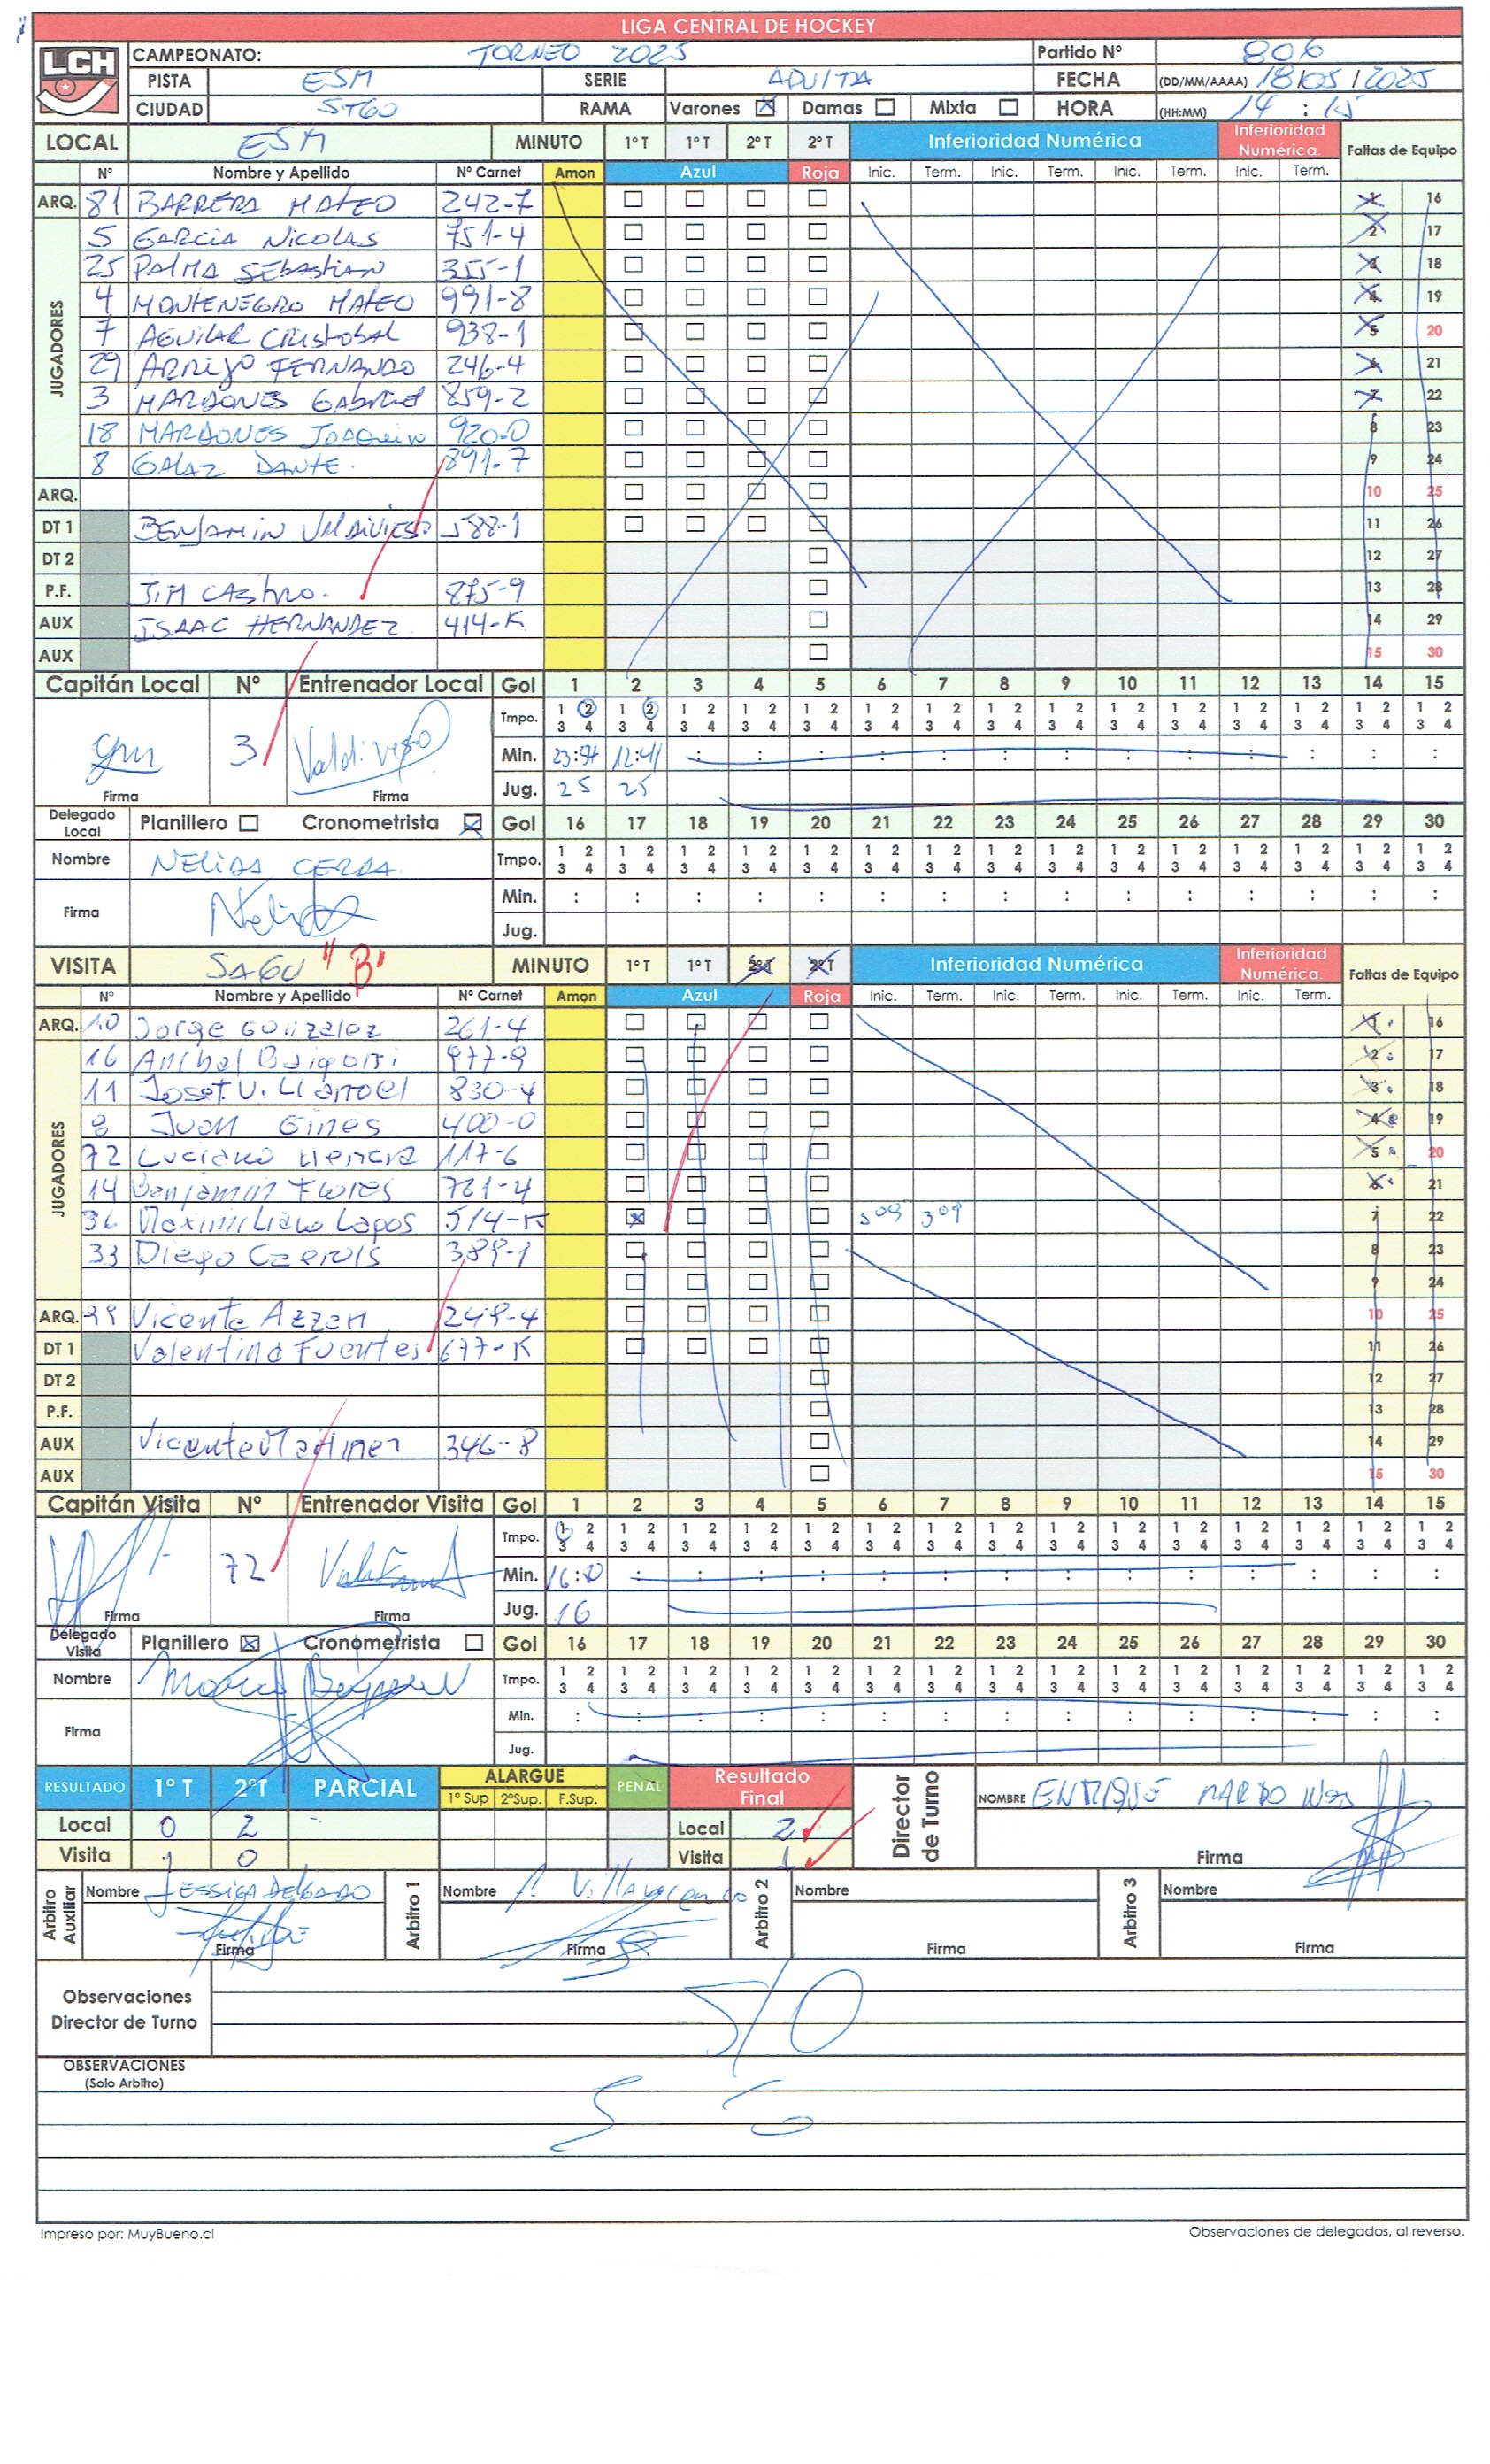 LIGA CENTRAL DE HOCKEY
LCH
CAMPEONATO: TORNEO 2025 Partido Nº 806
PISTA ESM SERIE ADULTA FECHA (DD/MM/AAAA) 18/05/2025
CIUDAD STGO RAMA Varones Damas Mixta HORA (HH:MM) 14:15
LOCAL ESM MINUTO 1º T 1º T 2º T 2º T Inferioridad Numérica Inferioridad Numérica. Faltas de Equipo
Nº Nombre y Apellido Nº Carnet Amon Azul Roja Inic. Term. Inic. Term. Inic. Term. Inic. Term.
JUGADORES
ARQ. 81 BARRERA MATEO 242-7 1 16
5 GARCIA NICOLAS 751-4 2 17
25 PALMA SEBASTIAN 355-1 3 18
4 MONTENEGRO MATEO 991-8 4 19
7 AGUILAR CRISTOBAL 938-1 5 20
29 ARREJO FERNANDO 246-4 6 21
3 MARDONES GABRIEL 859-2 7 22
18 MARDONES JOAQUIN 920-0 8 23
8 GALAZ DANTE. 891-7 9 24
ARQ. 10 25
DT 1 BENJAMIN VALDIVIESO 588-1 11 26
DT 2 12 27
P.F. JIM CASTRO. 875-9 13 28
AUX ISAAC HERNANDEZ. 414-K 14 29
AUX 15 30
Capitán Local Nº Entrenador Local Gol 1 2 3 4 5 6 7 8 9 10 11 12 13 14 15
3 Valdivieso Tmpo. 1 2 3 4 1 2 3 4 1 2 3 4 1 2 3 4 1 2 3 4 1 2 3 4 1 2 3 4 1 2 3 4 1 2 3 4 1 2 3 4 1 2 3 4 1 2 3 4 1 2 3 4 1 2 3 4 1 2 3 4
Min. 23:54 12:41 : : : : : : : : : : : : :
Firma Firma Jug. 25 25
Delegado Local Planillero Cronometrista Gol 16 17 18 19 20 21 22 23 24 25 26 27 28 29 30
Nombre NELIDA CERDA Tmpo. 1 2 3 4 1 2 3 4 1 2 3 4 1 2 3 4 1 2 3 4 1 2 3 4 1 2 3 4 1 2 3 4 1 2 3 4 1 2 3 4 1 2 3 4 1 2 3 4 1 2 3 4 1 2 3 4 1 2 3 4
Firma Min. : : : : : : : : : : : : : : :
Jug.
VISITA SAGU "B" MINUTO 1º T 1º T 2º T 2º T Inferioridad Numérica Inferioridad Numérica. Faltas de Equipo
Nº Nombre y Apellido Nº Carnet Amon Azul Roja Inic. Term. Inic. Term. Inic. Term. Inic. Term.
JUGADORES
ARQ. 10 Jorge Gonzalez 261-4 1 16
16 Anibal Baigorri 977-9 2 17
11 Josef. Villarroel 830-4 3 18
8 Juan Gines 400-0 4 19
72 Luciano Herrera 117-6 5 20
14 Benjamin Flores 761-4 6 21
36 Maximiliano Lagos 514-K 509 309 7 22
33 Diego Czervis 389-1 8 23
9 24
ARQ. 99 Vicente Azzen 249-4 10 25
DT 1 Valentina Fuentes 677-K 11 26
DT 2 12 27
P.F. 13 28
AUX Vicente Martinez 346-8 14 29
AUX 15 30
Capitán Visita Nº Entrenador Visita Gol 1 2 3 4 5 6 7 8 9 10 11 12 13 14 15
72 Tmpo. 1 2 3 4 1 2 3 4 1 2 3 4 1 2 3 4 1 2 3 4 1 2 3 4 1 2 3 4 1 2 3 4 1 2 3 4 1 2 3 4 1 2 3 4 1 2 3 4 1 2 3 4 1 2 3 4 1 2 3 4
Min. : : : : : : : : : : : : : :
Firma Firma Jug. 16
Delegado Visita Planillero Cronometrista Gol 16 17 18 19 20 21 22 23 24 25 26 27 28 29 30
Nombre Tmpo. 1 2 3 4 1 2 3 4 1 2 3 4 1 2 3 4 1 2 3 4 1 2 3 4 1 2 3 4 1 2 3 4 1 2 3 4 1 2 3 4 1 2 3 4 1 2 3 4 1 2 3 4 1 2 3 4 1 2 3 4
Firma Min. : : : : : : : : : : : : : : :
Jug.
RESULTADO 1º T 2ºT PARCIAL ALARGUE 1º Sup 2ºSup. F.Sup. PENAL Resultado Final Director de Turno NOMBRE ENRIQUE MARDONES
Local 0 2 Local 2
Visita 1 0 Visita 1 Firma
Arbitro Auxiliar Nombre JESSICA DELGADO Arbitro 1 Nombre Villavicencio Arbitro 2 Nombre Arbitro 3 Nombre
Firma Firma Firma Firma
Observaciones Director de Turno S/O
OBSERVACIONES
(Solo Arbitro)
S O
Impreso por: MuyBueno.cl Observaciones de delegados, al reverso.